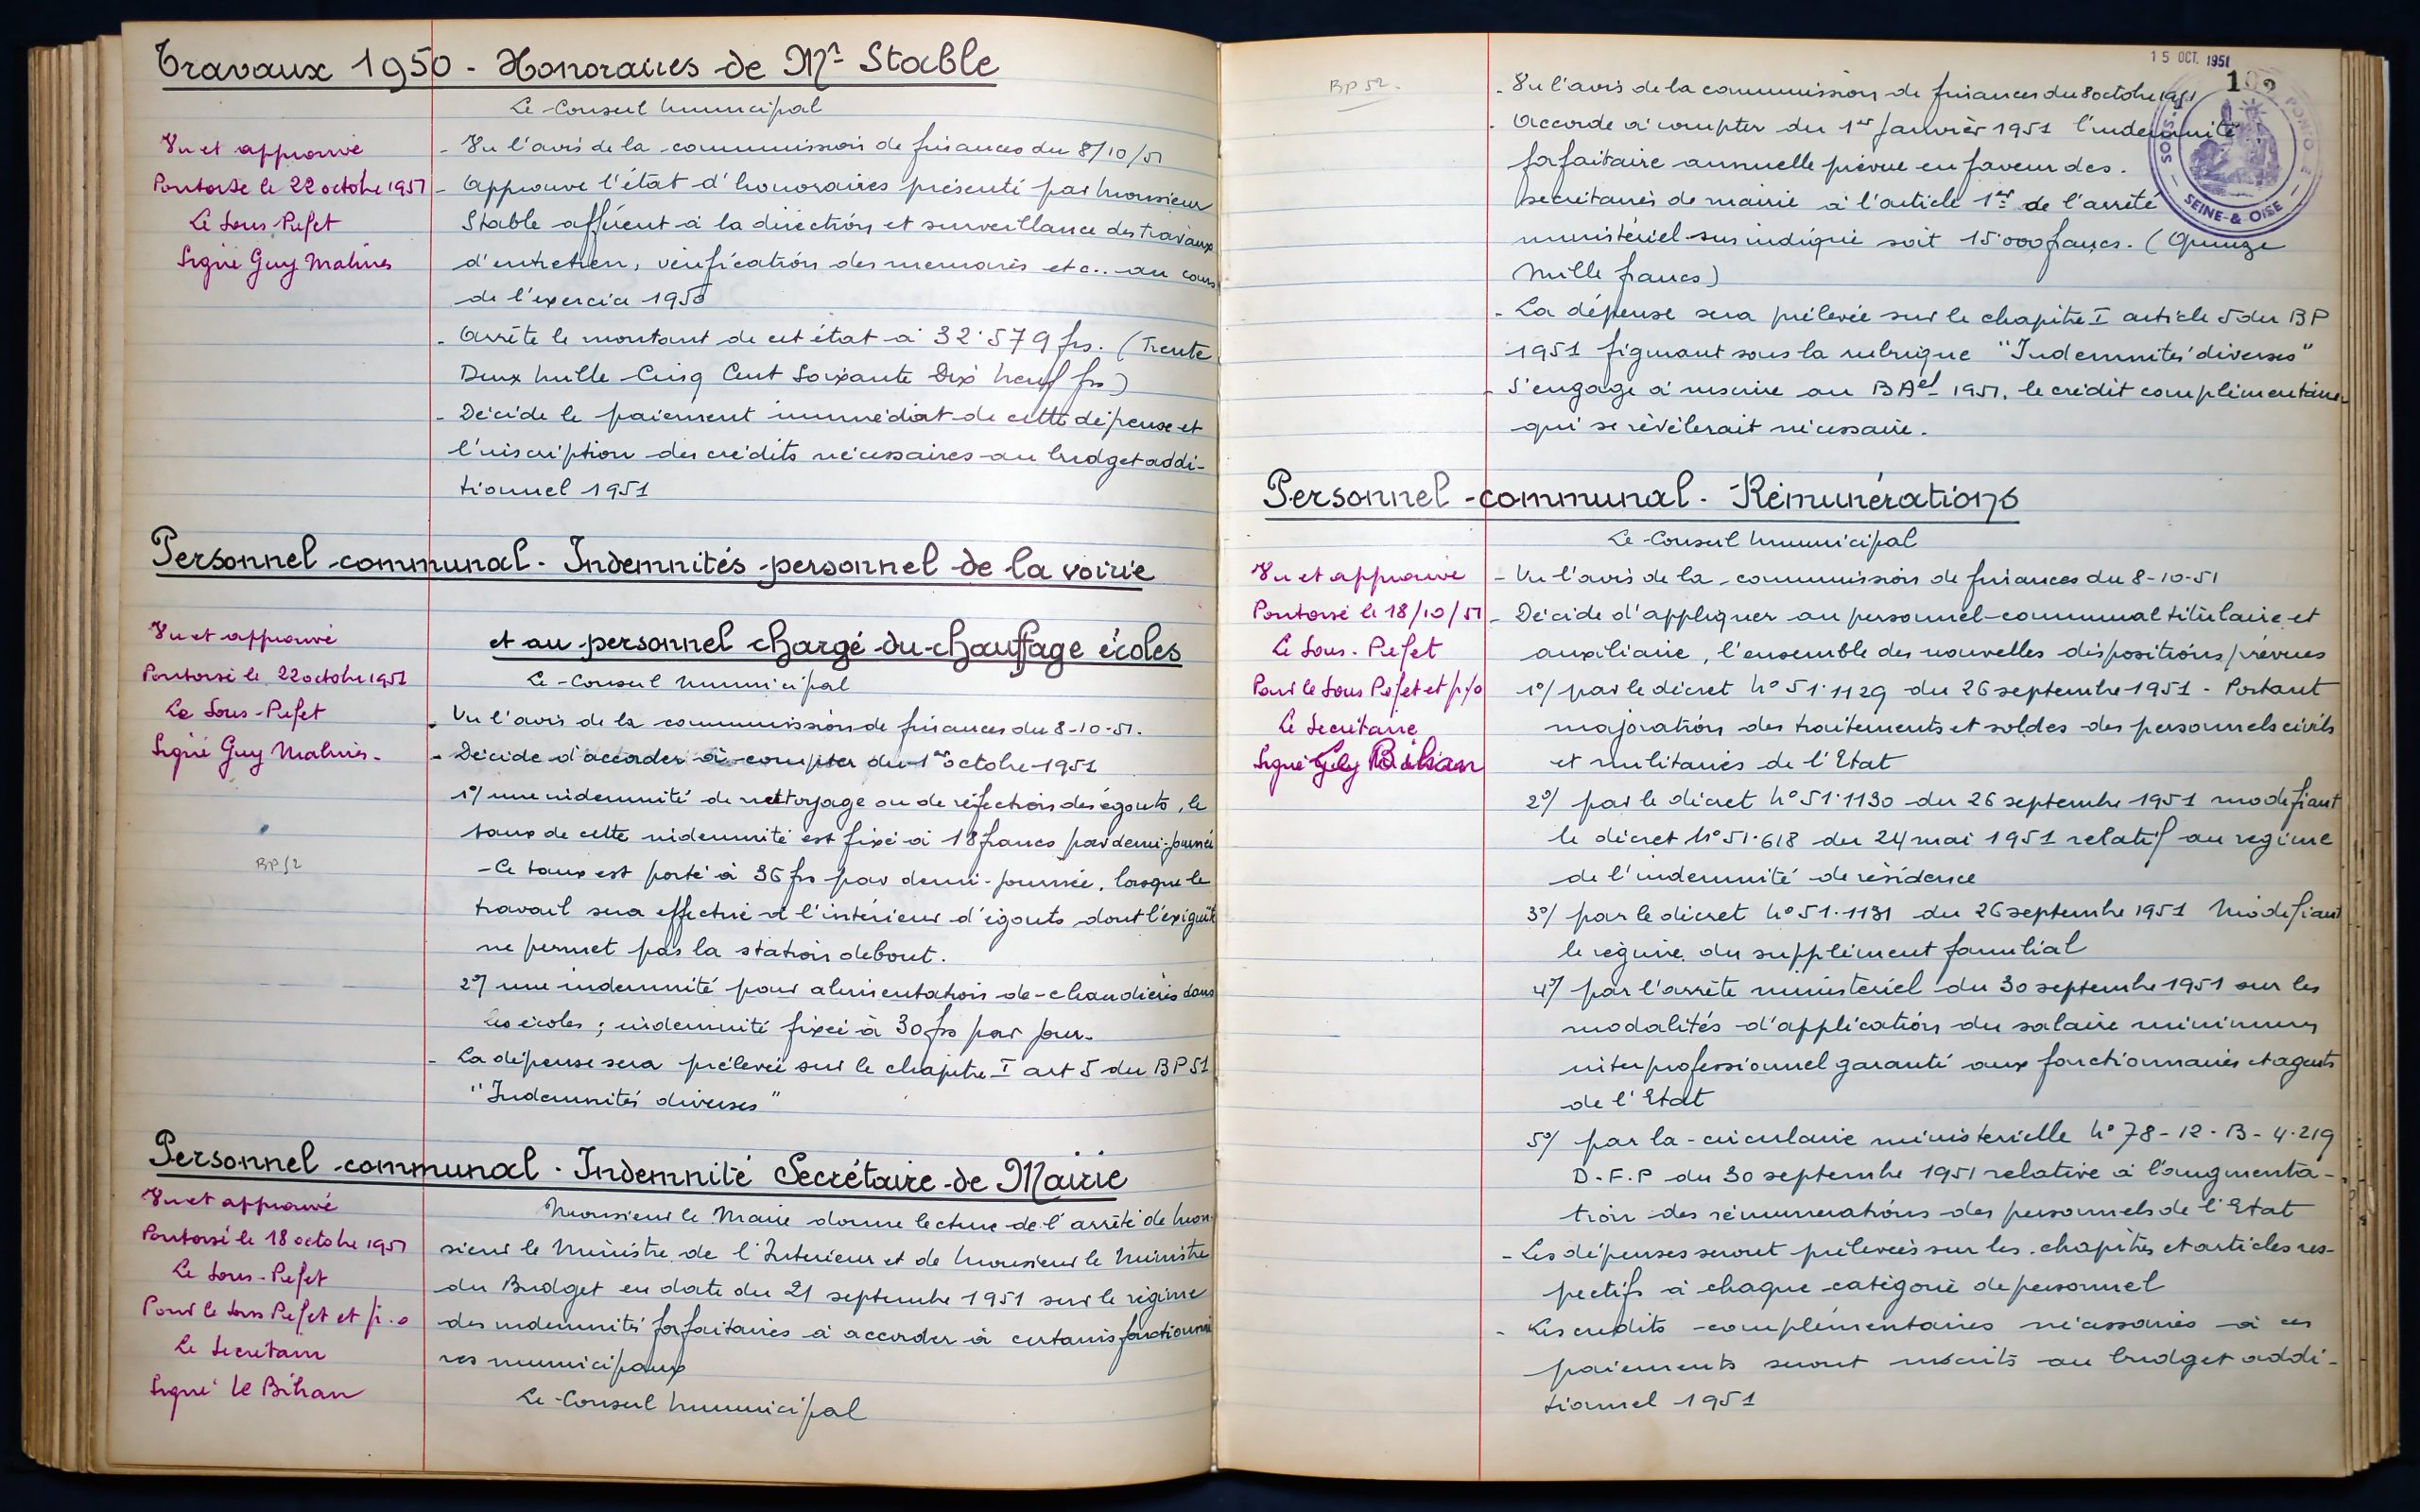 Travaux 1950 - Honoraires de Mr Stable
Le Conseil Municipal
Vu et approuvé
Pontoise le 22 octobre 1951
Le Sous Préfet
Signé Guy Malines
- Vu l'avis de la commission de finances du 8/10/51
- Approuve l'état d'honoraires présenté par Monsieur
Stable afférent à la direction et surveillance des travaux
d'entretien, vérification des memoires etc.. au cours
de l'exercice 1950
- Arrête le montant de cet état à 32.579 frs. (Trente
Deux Mille Cinq Cent Soixante Dix Neuf frs)
- Décide le paiement immédiat de cette dépense et
l'inscription des crédits nécessaires au budget addi-
tionnel 1951
Personnel communal. Indemnités personnel de la voirie
et au personnel chargé du chauffage écoles
Vu et approuvé
Pontoise le 22 octobre 1951
Le Sous-Préfet
Signé Guy Malines.
BP52
Le Conseil Municipal
- Vu l'avis de la commission de finances du 8-10-51.
- Décide d'accorder à compter du 1er octobre 1951
1°/ une indemnité de nettoyage ou de réfection des égouts, le
taux de cette indemnité est fixé à 18 francs par demi-journée
- Ce taux est porté à 36 frs par demi-journée, lorsque le
travail sera effectué à l'intérieur d'égouts dont l'exiguité
ne permet pas la station debout.
2°/ une indemnité pour alimentation de chaudières dans
les écoles ; indemnité fixée à 30 frs par jour.
- La dépense sera prélevée sur le chapitre I art 5 du BP 51
"Indemnités diverses"
Personnel communal. Indemnité Secrétaire de Mairie
Vu et approuvé
Pontoise le 18 octobre 1951
Le Sous-Préfet
Pour le Sous Préfet et p.o
Le Secrétaire
Signé Le Bihan
Monsieur le Maire donne lecture de l'arrêté de Mon-
sieur le Ministre de l'Intérieur et de Monsieur le Ministre
du Budget en date du 21 septembre 1951 sur le régime
des indemnités forfaitaires à accorder à certains fonctionnai
res municipaux
Le Conseil Municipal
15 OCT. 1951
SEINE-&-OISE
BP 52.
- Vu l'avis de la commission de finances du 8 octobre 1951
- Accorde à compter du 1er Janvier 1951 l'indemnité
forfaitaire annuelle prévue en faveur des.
secrétaires de mairie à l'article 1er de l'arrêté
ministériel sus indiqué soit 15.000 francs. (Quinze
Mille francs)
- La dépense sera prélevée sur le chapitre I article 5 du BP
1951 figurant sous la rubrique "Indemnités diverses"
- S'engage à inscrire au BAel 1951. le crédit complémentaire
qui se révélerait nécessaire.
Personnel communal. Rémunérations
Le Conseil Municipal
Vu et approuvé
Pontoise le 18/10/51
Le Sous-Préfet
Pour le Sous Préfet et p/o
Le Secrétaire
Signé Bihan
- Vu l'avis de la commission de finances du 8-10-51
- Décide d'appliquer au personnel communal titulaire et
auxiliaire, l'ensemble des nouvelles dispositions prévues
1°/ par le décret N° 51.1129 du 26 septembre 1951 - Portant
majoration des traitements et soldes des personnels civils
et militaires de l'Etat
2°/ par le décret N° 51.1130 du 26 septembre 1951 modifiant
le décret N° 51.618 du 24 mai 1951 relatif au régime
de l'indemnité de résidence
3°/ par le décret N° 51.1131 du 26 septembre 1951 Modifiant
le régime du supplément familial
4°/ par l'arrêté ministériel du 30 septembre 1951 sur les
modalités d'application du salaire minimum
interprofessionnel garanti aux fonctionnaires et agents
de l'Etat
5°/ par la circulaire ministérielle N° 78-12-B-4.219
D.F.P du 30 septembre 1951 relative à l'augmenta-
tion des rémunérations des personnels de l'Etat
- Les dépenses seront prélevées sur les chapitres et articles res-
pectifs à chaque catégorie de personnel
- Les crédits complémentaires nécessaires à ces
paiements seront inscrits au budget addi-
tionnel 1951